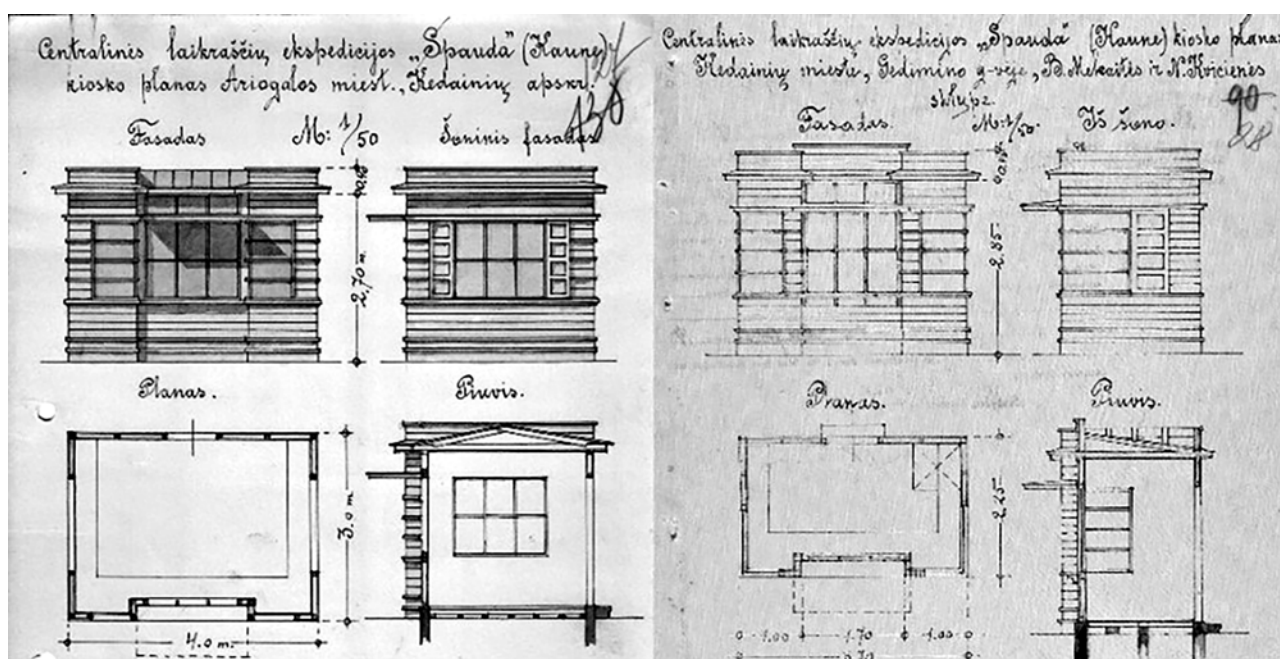 Centralinės laikraščių ekspedicijos „Spauda" (Kaune)
kiosko planas Ariogalos miest., Kėdainių apskr.
138
Fasadas M: 1/50 Šoninis fasadas
2,70 m.
Planas. Piuvis.
3.0 m.
4.0 m.
Centralinės laikraščių ekspedicijos „Spauda" (Kaune) kiosko planas
Kėdainių mieste, Gedimino g-vėje, B. Mekaitės ir N. Kvicienės
sklype.
90
88
Fasadas. M: 1/50. Iš šono.
2.85
Planas. Piuvis.
2.25
1.00 1.70 1.00
3.70